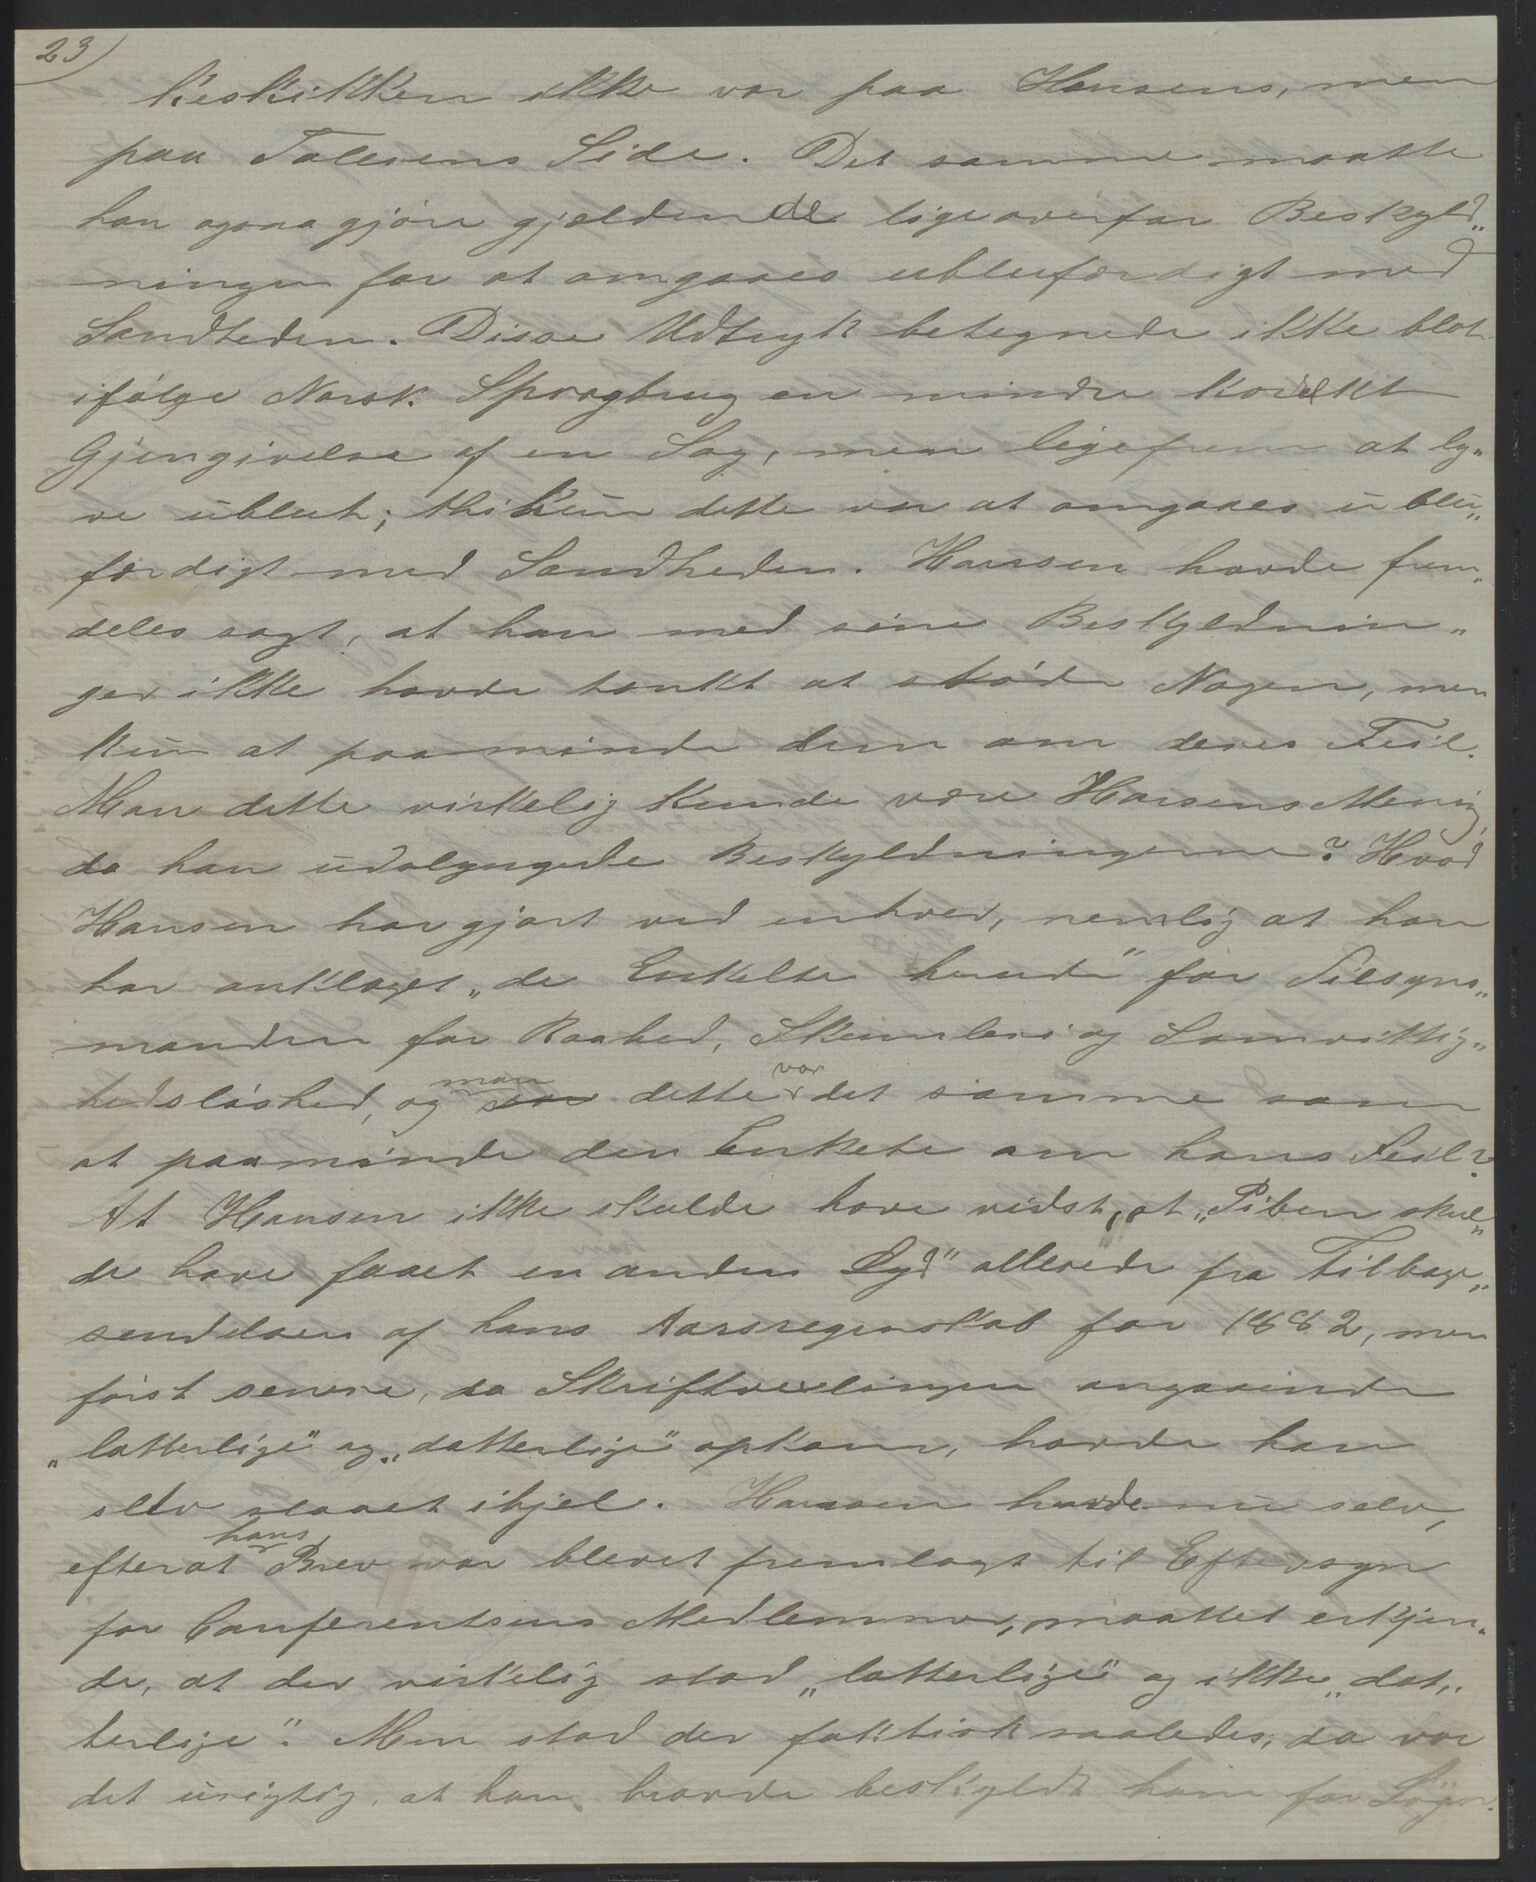 23)
Keskikken ikke var paa Hansens, men
paa Talerens Side. Det samme maatte
han ogsaa gjöre gjældende ligeoverfor Beskyld„
ningen for at omgaaes ubluferdigt med
Sandheden. Disse Udtryk betegnede ikke blot
ifölge Norsk Sprogbrug en mindre korrekt
Gjengivelse af en Sag, men ligefrem at ly„
ve ublut; thi kun dette var at omgaaes ublu„
færdigt med Sandheden. Hansen havde frem„
deles sagt, at han med sine Beskyldnin„
ger ikke havde tænkt at støde Nogen, men
kun at paaminde dem om deres Feil.
Mon dette virkelig kunde være Hansens Mening,
da han udslyngede Beskyldningerne? Hvad
Hansen har gjort ved enhver, nemlig at han
har anklaget „de Enkelte herude" for Tilsyns„
manden for Raahed, Skumleri og Samvittig„
hedslöshed, og mon dette var det samme som
at paaminde den Enkelte om hans Feil?
At Hansen ikke skulde have vidst, at „Piben skul„
de have faaet en anden Lyd" allerede fra Tilbage„
sendelsen af hans Aarsregnskab for 1882, men
först senere, da Skriftvexlingen angaaende
„latterlige" og „datterlige" opkom, havde han
selv slaaet ihjel. Hansen havde nu selv,
efterat hans Brev var blevet fremlagt til Eftersyn
for Conferentsens Medlemmer, maattet erkjen„
de, at der virkelig stod „latterlige" og ikke „dat„
terlige". Men stod der faktisk saaledes, da var
det urigtig, at han havde beskyldt ham for Lögn.